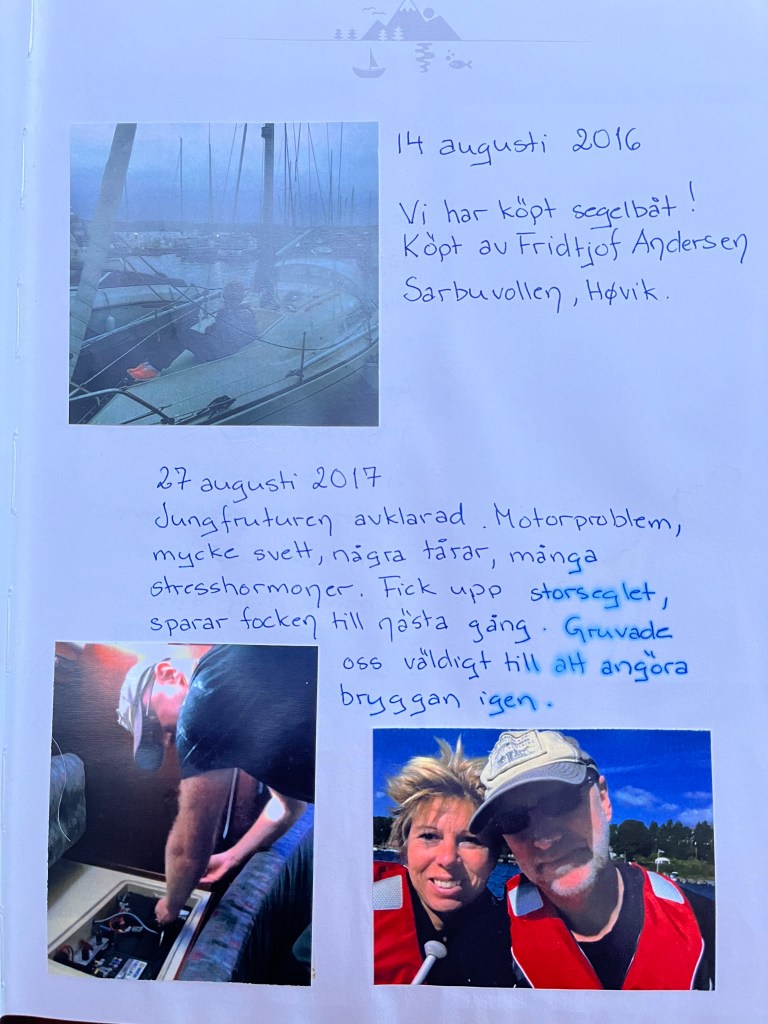 14 augusti 2016
Vi har köpt segelbåt!
Köpt av Fridtjof Andersen
Sarbuvollen, Høvik.
27 augusti 2017
Jungfruturen avklarad. Motorproblem,
mycke svett, några tårar, många
stresshormoner. Fick upp storseglet,
sparar focken till nästa gång. Gruvade
oss väldigt till att angöra
bryggan igen.